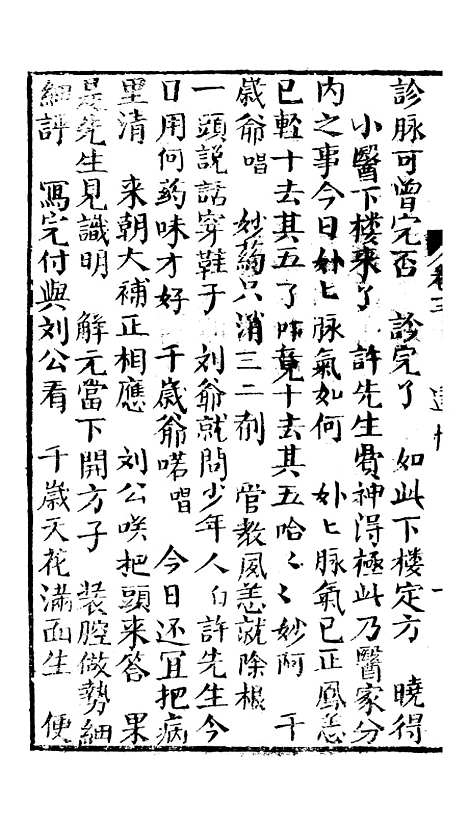 卷三
診脉可曾完否　診完了　如此下楼定方　曉得
小醫下楼来了　許先生費神淂極此乃醫家分
内之事今日妙匕脉氣如何　妙匕脉氣已正鳳恙
已輊十去其五了　竟十去其五哈〻〻妙阿　千
歲爺唱　妙藥只消三二剂　管教風恙就除根
一頭説話穿鞋子　刘爺就問少年人　白許先生今
日用何药味才好　千歲爺喏唱　今日还冝把病
里清　来朝大補正相應　刘公咲把頭来答　果
是先生見識明　解元當下開方子　裝腔做勢細
細評　寫完付與刘公看　千歲天花滿面生　便